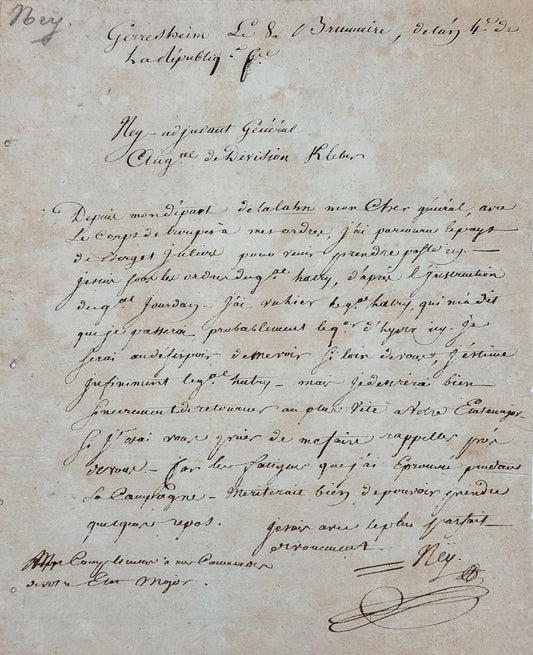 Ney.
Gerresheim Le 8e Brumaire, de l'an 4e. de
La Républiq.
Ney adjudant Général
au gal de Division Kleber
Depuis mon départ de la Lahn mon Cher général, avec
Le Corps de troupe à mes ordres, j'ai parcouru le pays
de Berg et Juliers pour venir prendre poste icy
je suis sous les ordres du gal hatry, d'après l'instruction
du gal Jourdan. J'ai vu hier le gal hatry, qui m'a dit
que je passerai probablement le qer d'hyver icy. Je
serai au désespoir de me voir si loin de vous, J'éstime
infiniment le gal hatry mais je desirerai bien
sincerement de retourner au plus vite a votre
Si j'osai vous prier de me faire rappeller près
de vous. Car les fatigues que j'ai éprouvé pendant
la Campagne Meriterait bien de pouvoir prendre
quelques repos. je suis avec le plus parfait
devouement
Ney.
Mes Complimens à nos Camarades
de votre Etat Major.